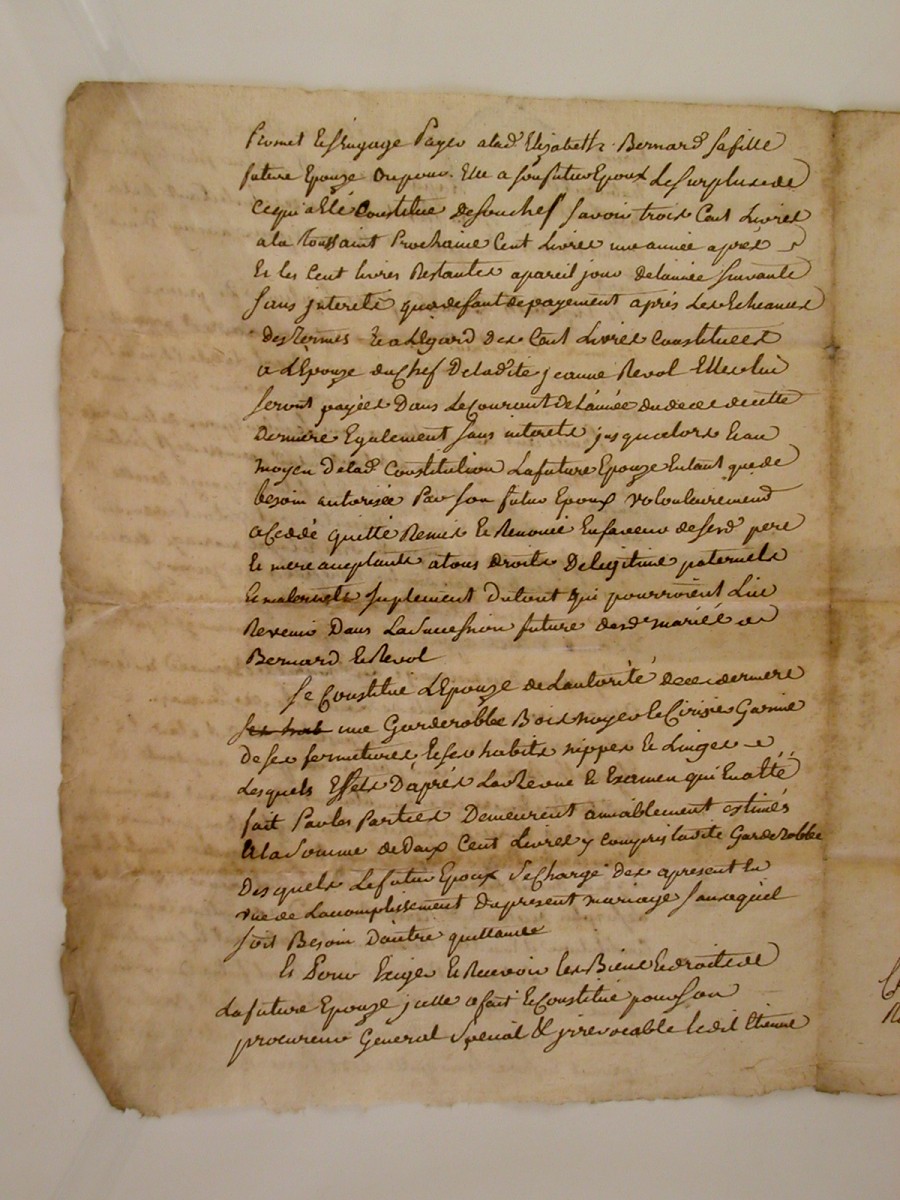 Promet et s'engage Payer a lad. Elizabeth Bernard sa fille
future Epouze ou pour Elle a son futur Epoux Le surplus de
ce qu'a Eté Constitué de son chef savoir trois Cent Livres
a la Toussaint Prochaine Cent Livres une année après
Et les Cent livres Restantes a pareil jour de l'année suivante
sans interets qu'a defaut de payement après Les Echeances
des termes et a l'Egard des Cent Livres Constituées
a L'Epouze du Chef De ladite jeanne Revol Elles lui
seront payées Dans Le Courant de L'année du deces de cette
Derniere Egalement sans interets jusqu'alors Et au
moyen de lad. Constitution La future Epouze En tant que de
besoin autorisée Par son futur Epoux volontairement
a Cedé quitté Remis et Renoncé En faveur de sesd. pere
et mere acceptants a tous droits De legitime paternels
et maternels suplement Du tout qui pourroient Lui
Revenir Dans La succession future desd. mariés
Bernard et Revol
Se Constitue L'Epouze de L'autorité de ce dernier
ses hab une Garderobbe Bois noyer et Cirisier Garnie
de ses fermetures et ses habits nippes et Linges
Lesquels Effets D'après La Revue et Examen qui En a Eté
fait Par les Parties Demeurent amiablement estimés
a la somme de Deux Cent Livres y compris ladite Garderobbe
Desquels Le futur Epoux se Charge des apresent En
vue de L'acomplissement Du present mariage sans qu'il
soit Besoin D'autre quittance
Et Pour Exiger et Recevoir les Biens et droits de
La future Epouze j'celle a fait et Constitué pour son
procureur General Special & jrrevocable ledit Etienne